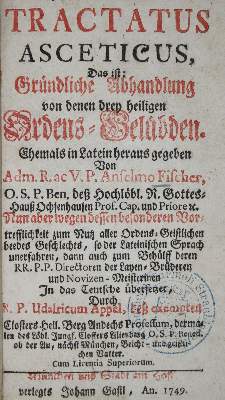 TRACTATUS
ASCETICUS,
Das ist:
Gründliche Abhandlung
von denen drey heiligen
Ordens-Gelübden.
Ehemals in Latein heraus gegeben
Von
Adm. R. ac V. P. Anselmo Fischer,
O. S. P. Ben, deß Hochlöbl. R. Gottes-
Hauß Ochsenhausen Prof. Cap. und Priore &c.
Nun aber wegen dessen besonderen Vor-
trefflichkeit zum Nutz aller Ordens-Geistlichen
beedes Geschlechts, so der Lateinischen Sprach
unerfahren, dann auch zum Behülff deren
RR. P P. Directoren der Layen-Brüderen
und Novizen-Meisterinen
In das Teutsche übersetzet,
Durch
R. P. Udalricum Appel, deß exempten
Closters Heil. Berg Andechs Professum, dermah-
len des Löbl. Jungf. Closters Lilienberg O. S. P. Bened.
ob der Au, nächst München, Beicht-
chen Vatter.
Cum Licentia Superiorum.
München und Stadt am Hof
verlegts Johann Gastl, An. 1749.